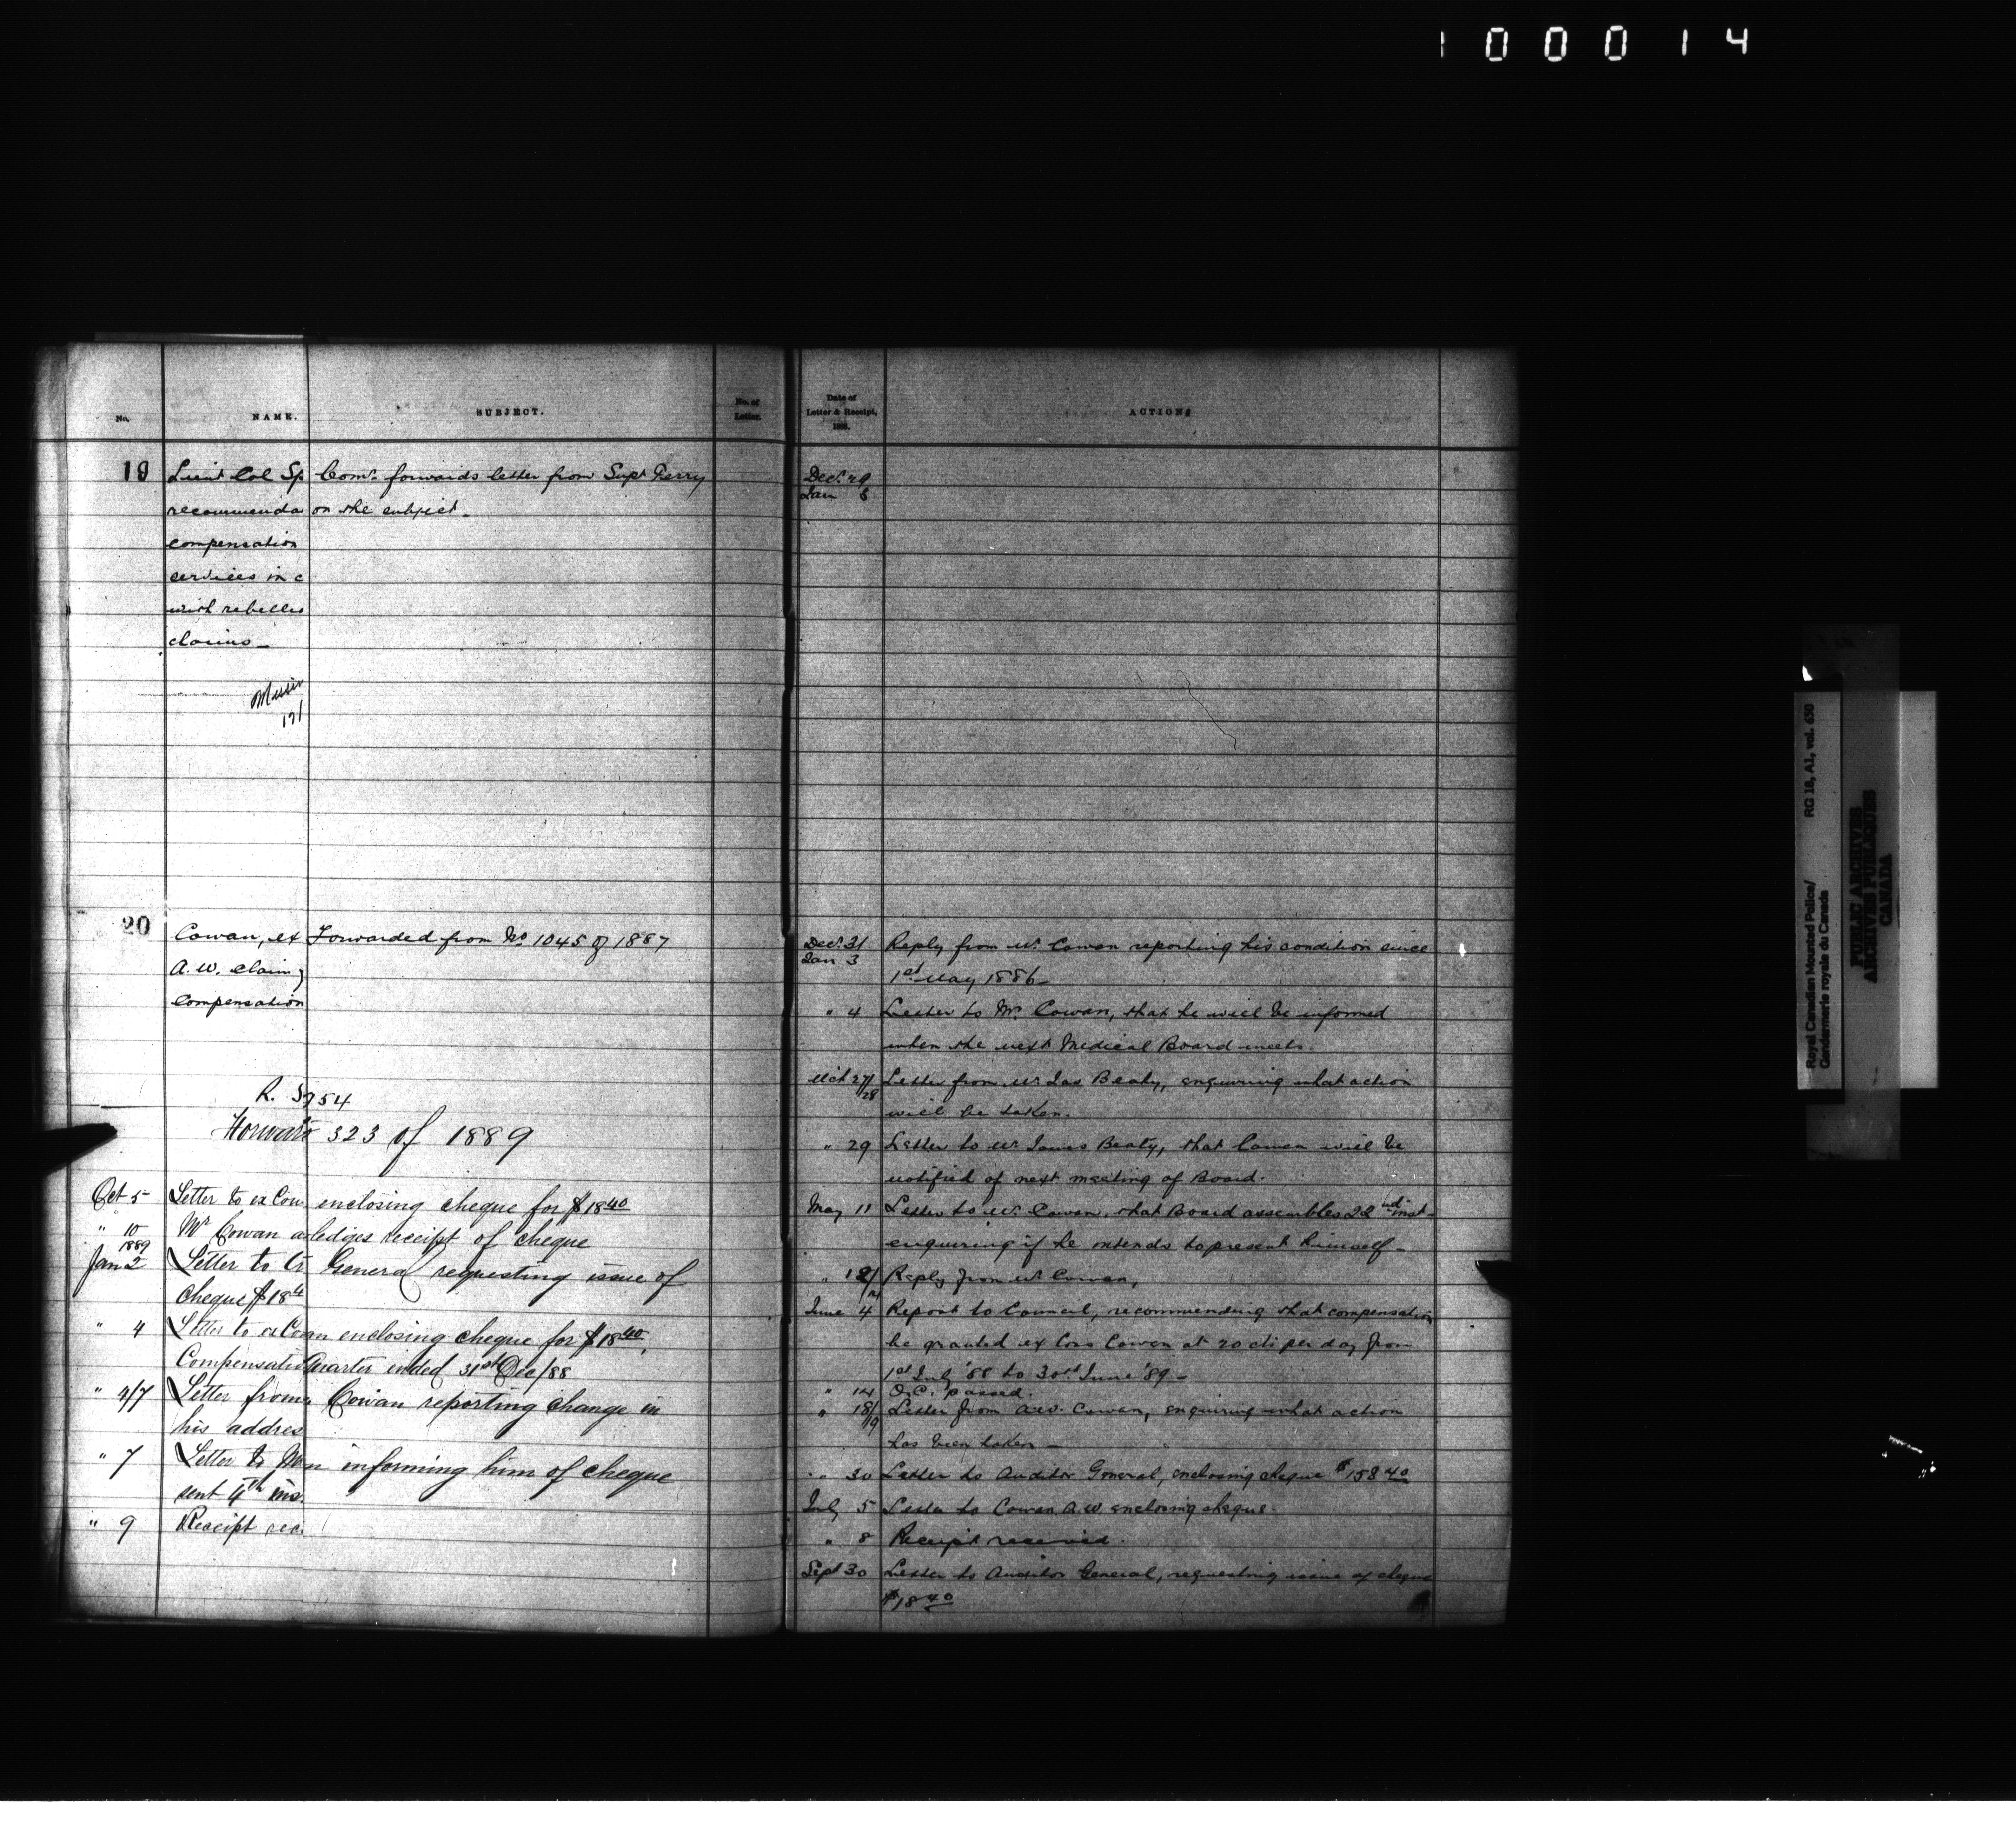 100014
No.
NAME.
SUBJECT.
No. of Letter.
Date of Letter & Receipt, 188
ACTION
19
Lieut Col Sp
recommenda
compensation
services in c
with rebellio
claims
Comr. forwards letter from Supt Perry
on the subject.
Decr. 29
Jan 3
20
Cowan, ex
A. W. claim
Compensation
Forwarded from No 1045 of 1887
R. 3754
323 of 1889
Oct 5 Letter to ex Con enclosing cheque for $18 40
" 10 Mr Cowan a ledges receipt of cheque
1889
Jan 2 Letter to General requesting issue of
Cheque $18
" 4 Letter to ex Con an enclosing cheque for $18 40,
Compensatio Quarter ended 31st Dec/88
" 4/7 Letter from Cowan reporting change in
his addres
" 7 Letter to n informing him of cheque
sent 4th ins
" 9 Receipt rec
Decr. 31
Jan 3
Reply from Mr. Cowan reporting his condition since
1st May 1886
" 4 Letter to Mr. Cowan, that he will be informed
when the next Medical Board meets.
Mch 27/28 Letter from Mr. Jas Beaty, enquiring what action
will be taken.
" 29 Letter to Mr. James Beaty, that Cowan will be
notified of next meeting of Board.
May 11 Letter to Mr. Cowan, that Board assembles 22nd inst
enquiring if he intends to present himself
" 12/14 Reply from Mr Cowan,
June 4 Report to Council, recommending that compensation
be granted ex Cons Cowan at 20 cts per day from
1st July '88 to 30th June '89
" 14 O.C. passed.
" 18/19 Letter from A.W. Cowan, enquiring what action
has been taken
" 30 Letter to Auditor General, enclosing cheque $158 40
July 5 Letter to Cowan A.W. enclosing cheque
" 8 Receipt received.
Sept 30 Letter to Auditor General, requesting issue of cheque
$18 40
Royal Canadian Mounted Police/ RG 18, A1, vol. 650
Gendarmerie royale du Canada
PUBLIC ARCHIVES
ARCHIVES PUBLIQUES
CANADA